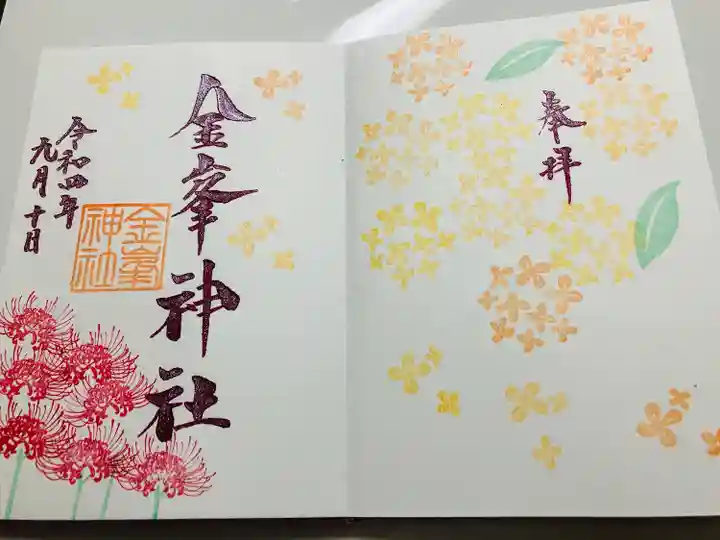 奉拝
金峯神社
令和四年
九月十日
金峯
神社